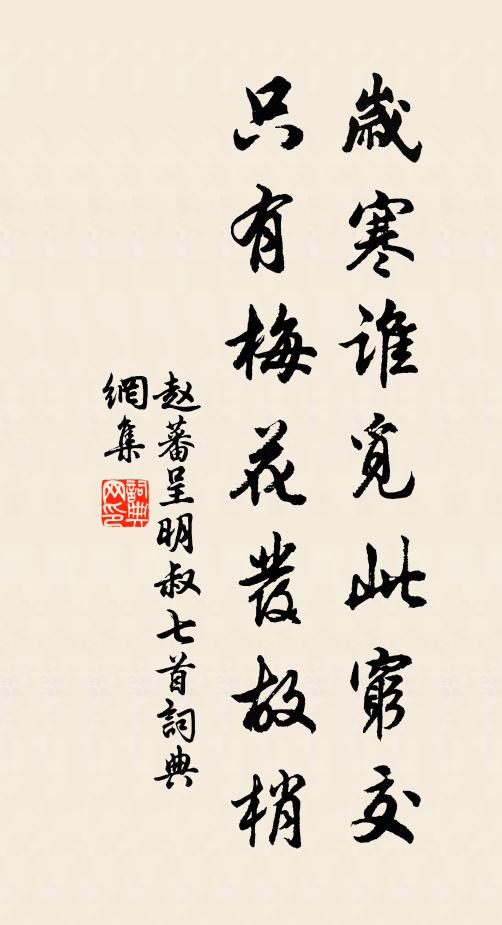 歲寒誰覓此窮交
只有梅花發故梢
赵蕃呈明叔七首詞典
網集
詞典網印